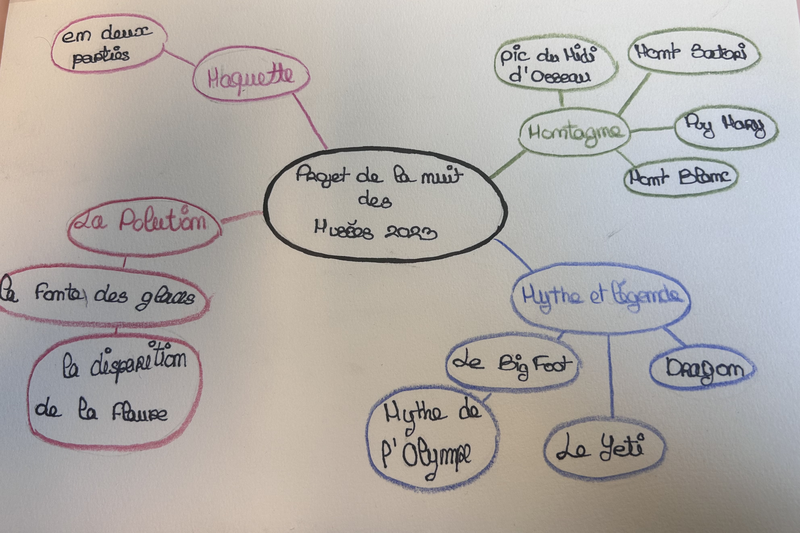 en deux
parties
Maquette
Pic du Midi
d'Osseau
Mont Sartori
Montagne
Puy Mary
Mont Blanc
Projet de la nuit
des
Musées 2023
La Polution
la fonte des glaces
la disparition
de la flause
Mythe et légende
Le Big Foot
Dragon
Mythe de
l'Olympe
Le Yeti